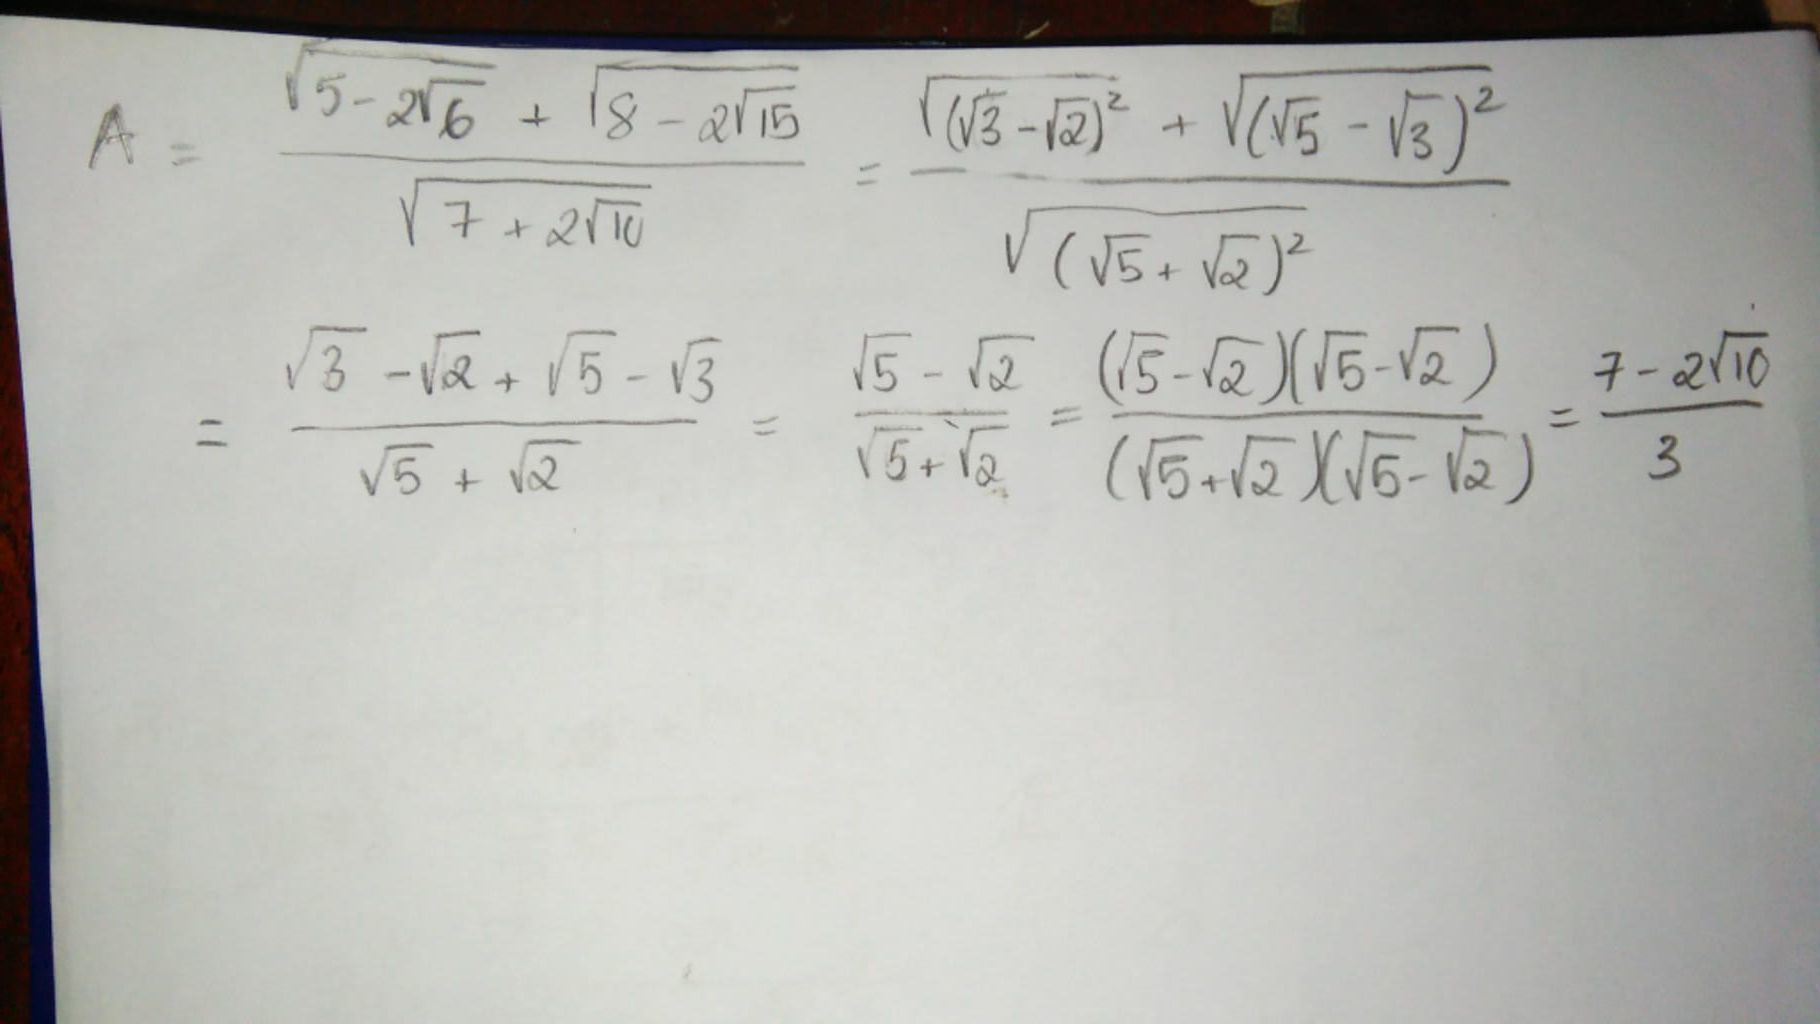 A = (√(5 - 2√6) + √(8 - 2√15)) / √(7 + 2√10) = (√((√3 - √2)²) + √((√5 - √3)²)) / √((√5 + √2)²)
= (√3 - √2 + √5 - √3) / (√5 + √2) = (√5 - √2) / (√5 + √2) = ((√5 - √2)(√5 - √2)) / ((√5 + √2)(√5 - √2)) = (7 - 2√10) / 3